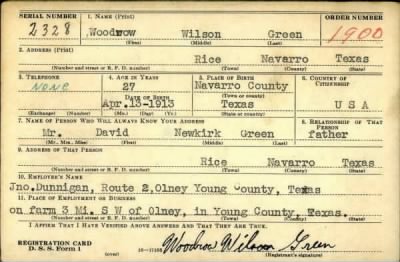 SERIAL NUMBER 1. NAME (Print) ORDER NUMBER
2328 Woodrow Wilson Green 1900
(First) (Middle) (Last)
2. ADDRESS (Print)
Rice Navarro Texas
(Number and street or R. F. D. number) (Town) (County) (State)
3. TELEPHONE 4. AGE IN YEARS 5. PLACE OF BIRTH 6. COUNTRY OF CITIZENSHIP
none 27 Navarro County
DATE OF BIRTH (Town or county)
Apr.13-1913 Texas U S A
(Exchange) (Number) (Mo.) (Day) (Yr.) (State or country)
7. NAME OF PERSON WHO WILL ALWAYS KNOW YOUR ADDRESS 8. RELATIONSHIP OF THAT PERSON
Mr. David Newkirk Green father
(Mr., Mrs., Miss) (First) (Middle) (Last)
9. ADDRESS OF THAT PERSON
Rice Navarro Texas
(Number and street or R. F. D. number) (Town) (County) (State)
10. EMPLOYER'S NAME
Jno.Dunnigan, Route 2,Olney Young County, Texas
11. PLACE OF EMPLOYMENT OR BUSINESS
on farm 3 Mi. S W of Olney, in Young County, Texas.
(Number and street or R. F. D. number) (Town) (County) (State)
I AFFIRM THAT I HAVE VERIFIED ABOVE ANSWERS AND THAT THEY ARE TRUE.
REGISTRATION CARD
D. S. S. Form 1 Woodrow Wilson Green
(over) (Registrant's signature)